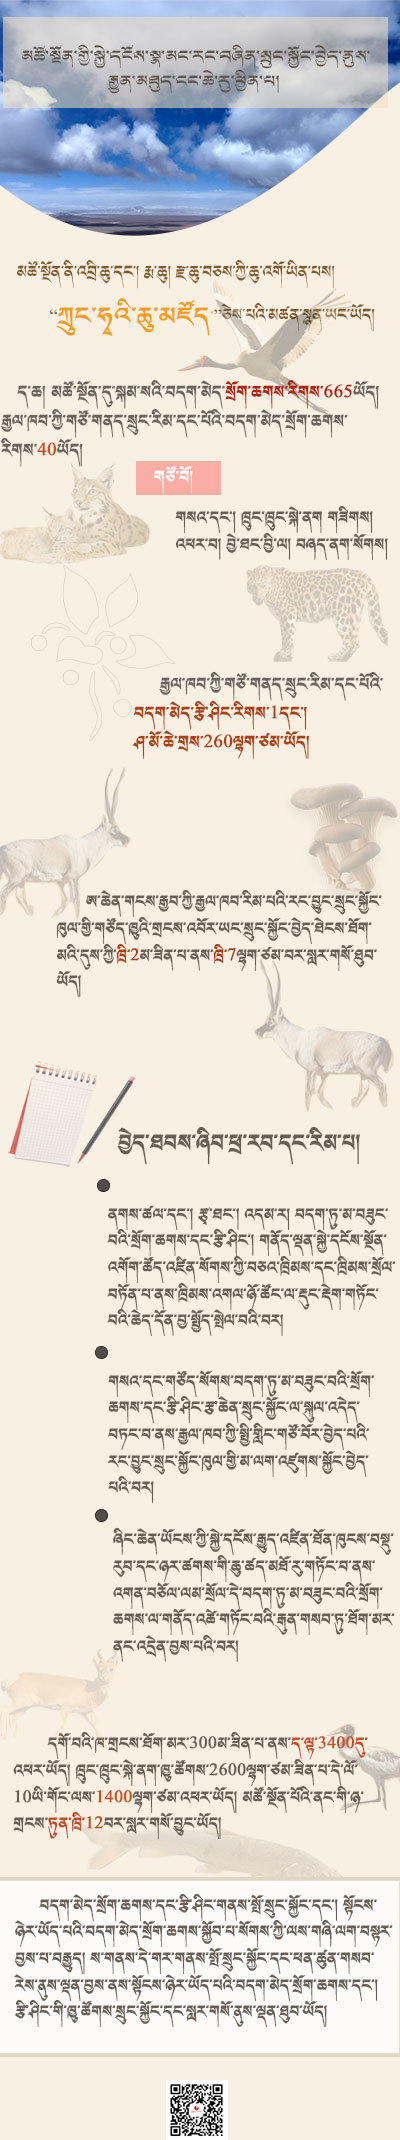 མཚོ་སྔོན་གྱི་སྐྱེ་དངོས་སྣ་མང་རང་བཞིན་སྲུང་སྐྱོང་བྱེད་ནུས་
རྒྱུན་མཐུད་ངང་ཆེ་རུ་ཕྱིན་པ།
མཚོ་སྔོན་ནི་འབྲི་ཆུ་དང་། རྨ་ཆུ། རྫ་ཆུ་བཅས་ཀྱི་ཆུ་འགོ་ཡིན་པས།
“ཀྲུང་ཧྭའི་ཆུ་མཛོད་”ཅེས་པའི་མཚན་སྙན་ཡང་ཡོད།
ད་ཆ། མཚོ་སྔོན་དུ་སྐམ་སའི་བདག་མེད་སྲོག་ཆགས་རིགས་665ཡོད།
རྒྱལ་ཁབ་ཀྱི་གཙོ་གནད་སྲུང་རིམ་དང་པོའི་བདག་མེད་སྲོག་ཆགས་
རིགས་40ཡོད།
གཙོ་བོ།
གསའ་དང་། ཁྲུང་ཁྲུང་སྐེ་ནག གཟིགས།
འཕར་བ། བྱེ་ཐང་བྱི་ལ། བཞད་ནག་སོགས།
རྒྱལ་ཁབ་ཀྱི་གཙོ་གནད་སྲུང་རིམ་དང་པོའི་
བདག་མེད་རྩི་ཤིང་རིགས་1དང་།
ཤ་མོ་ཆེ་གྲས་260ལྷག་ཙམ་ཡོད།
ཨ་ཆེན་གངས་རྒྱབ་ཀྱི་རྒྱལ་ཁབ་རིམ་པའི་རང་བྱུང་སྲུང་སྐྱོང་
ཁུལ་གྱི་གཙོད་ཁྱུའི་གྲངས་འབོར་ཡང་སྲུང་སྐྱོང་བྱེད་ཐེངས་ཐོག་
མའི་དུས་ཀྱི་ཁྲི་2མ་ཟིན་པ་ནས་ཁྲི་7ལྷག་ཙམ་བར་སླར་གསོ་ཐུབ་
ཡོད།
བྱེད་ཐབས་ཞིབ་ཕྲ་རབ་དང་རིམ་པ།
ནགས་ཚལ་དང་། རྩྭ་ཐང་། འདམ་ར། བདག་ཏུ་མ་བཟུང་
བའི་སྲོག་ཆགས་དང་རྩི་ཤིང་། གནོད་ལྡན་སྐྱེ་དངོས་སྔོན་
འགོག་ཚོད་འཛིན་སོགས་ཀྱི་བཅའ་ཁྲིམས་དང་ཁྲིམས་སྲོལ་
བཏོན་པ་ནས་ཁྲིམས་འགལ་ཉོ་ཚོང་ལ་རྡུང་རྡེག་གཏོང་
བའི་ཆེད་དོན་བྱ་སྤྱོད་སྤེལ་བའི་བར།
གསའ་དང་གཙོད་སོགས་བདག་ཏུ་མ་བཟུང་བའི་སྲོག་
ཆགས་དང་རྩི་ཤིང་རྩ་ཆེན་སྲུང་སྐྱོང་ལ་སྐུལ་འདེད་
བཏང་བ་ནས་རྒྱལ་ཁབ་ཀྱི་སྤྱི་གླིང་གཙོ་བོར་བྱེད་པའི་
རང་བྱུང་སྲུང་སྐྱོང་ཁུལ་གྱི་མ་ལག་འཛུགས་སྐྱོང་བྱེད་
པའི་བར།
ཞིང་ཆེན་ཡོངས་ཀྱི་སྐྱེ་དངོས་རྒྱུད་འཛིན་ཐོན་ཁུངས་བསྡུ་
རུབ་དང་ཉར་ཚགས་གི་ཆུ་ཚད་མཐོ་རུ་གཏོང་བ་ནས་
འགན་བཅོལ་ལམ་སྲོལ་དེ་བདག་ཏུ་མ་བཟུང་བའི་སྲོག་
ཆགས་ལ་གནོད་འཚེ་གཏོང་བའི་རྒུན་གསབ་ཏུ་ཐོག་མར་
ནང་འདྲེན་བྱས་པའི་བར།
དགོ་བའི་ཁ་གྲངས་ཐོག་མར་300མ་ཟིན་པ་ནས་ད་ལྟ་3400དུ་
འཕར་ཡོད། ཁྲུང་ཁྲུང་སྐེ་ནག་ཁྱུ་ཚོགས་2600ལྷག་ཙམ་ཟིན་པ་དེ་ལོ་
10ཡི་གོང་ལས་1400ལྷག་ཙམ་འཕར་ཡོད། མཚོ་སྔོན་པོའི་ནང་གི་ཉ་
གྲངས་ཏུན་ཁྲི་12བར་སླར་གསོ་བྱུང་ཡོད།
བདག་མེད་སྲོག་ཆགས་དང་རྩི་ཤིང་གནས་སྤོ་སྲུང་སྐྱོང་དང་། སྟོངས་
ཉེར་ཡོད་པའི་བདག་མེད་སྲོག་ཆགས་སྐྱོབ་པ་སོགས་ཀྱི་ལས་གཞི་ལག་བསྟར་
བྱས་པ་བརྒྱུད། ས་གནས་དེ་གར་གནས་སྤོ་སྲུང་སྐྱོང་དང་ཕན་ཚུན་གསབ་
རེས་ནུས་ལྡན་བྱས་ནས་སྟོངས་ཉེར་ཡོད་པའི་བདག་མེད་སྲོག་ཆགས་དང་།
རྩི་ཤིང་གི་ཁྱུ་ཚོགས་སྲུང་སྐྱོང་དང་སླར་གསོ་ནུས་ལྡན་ཐུབ་ཡོད།